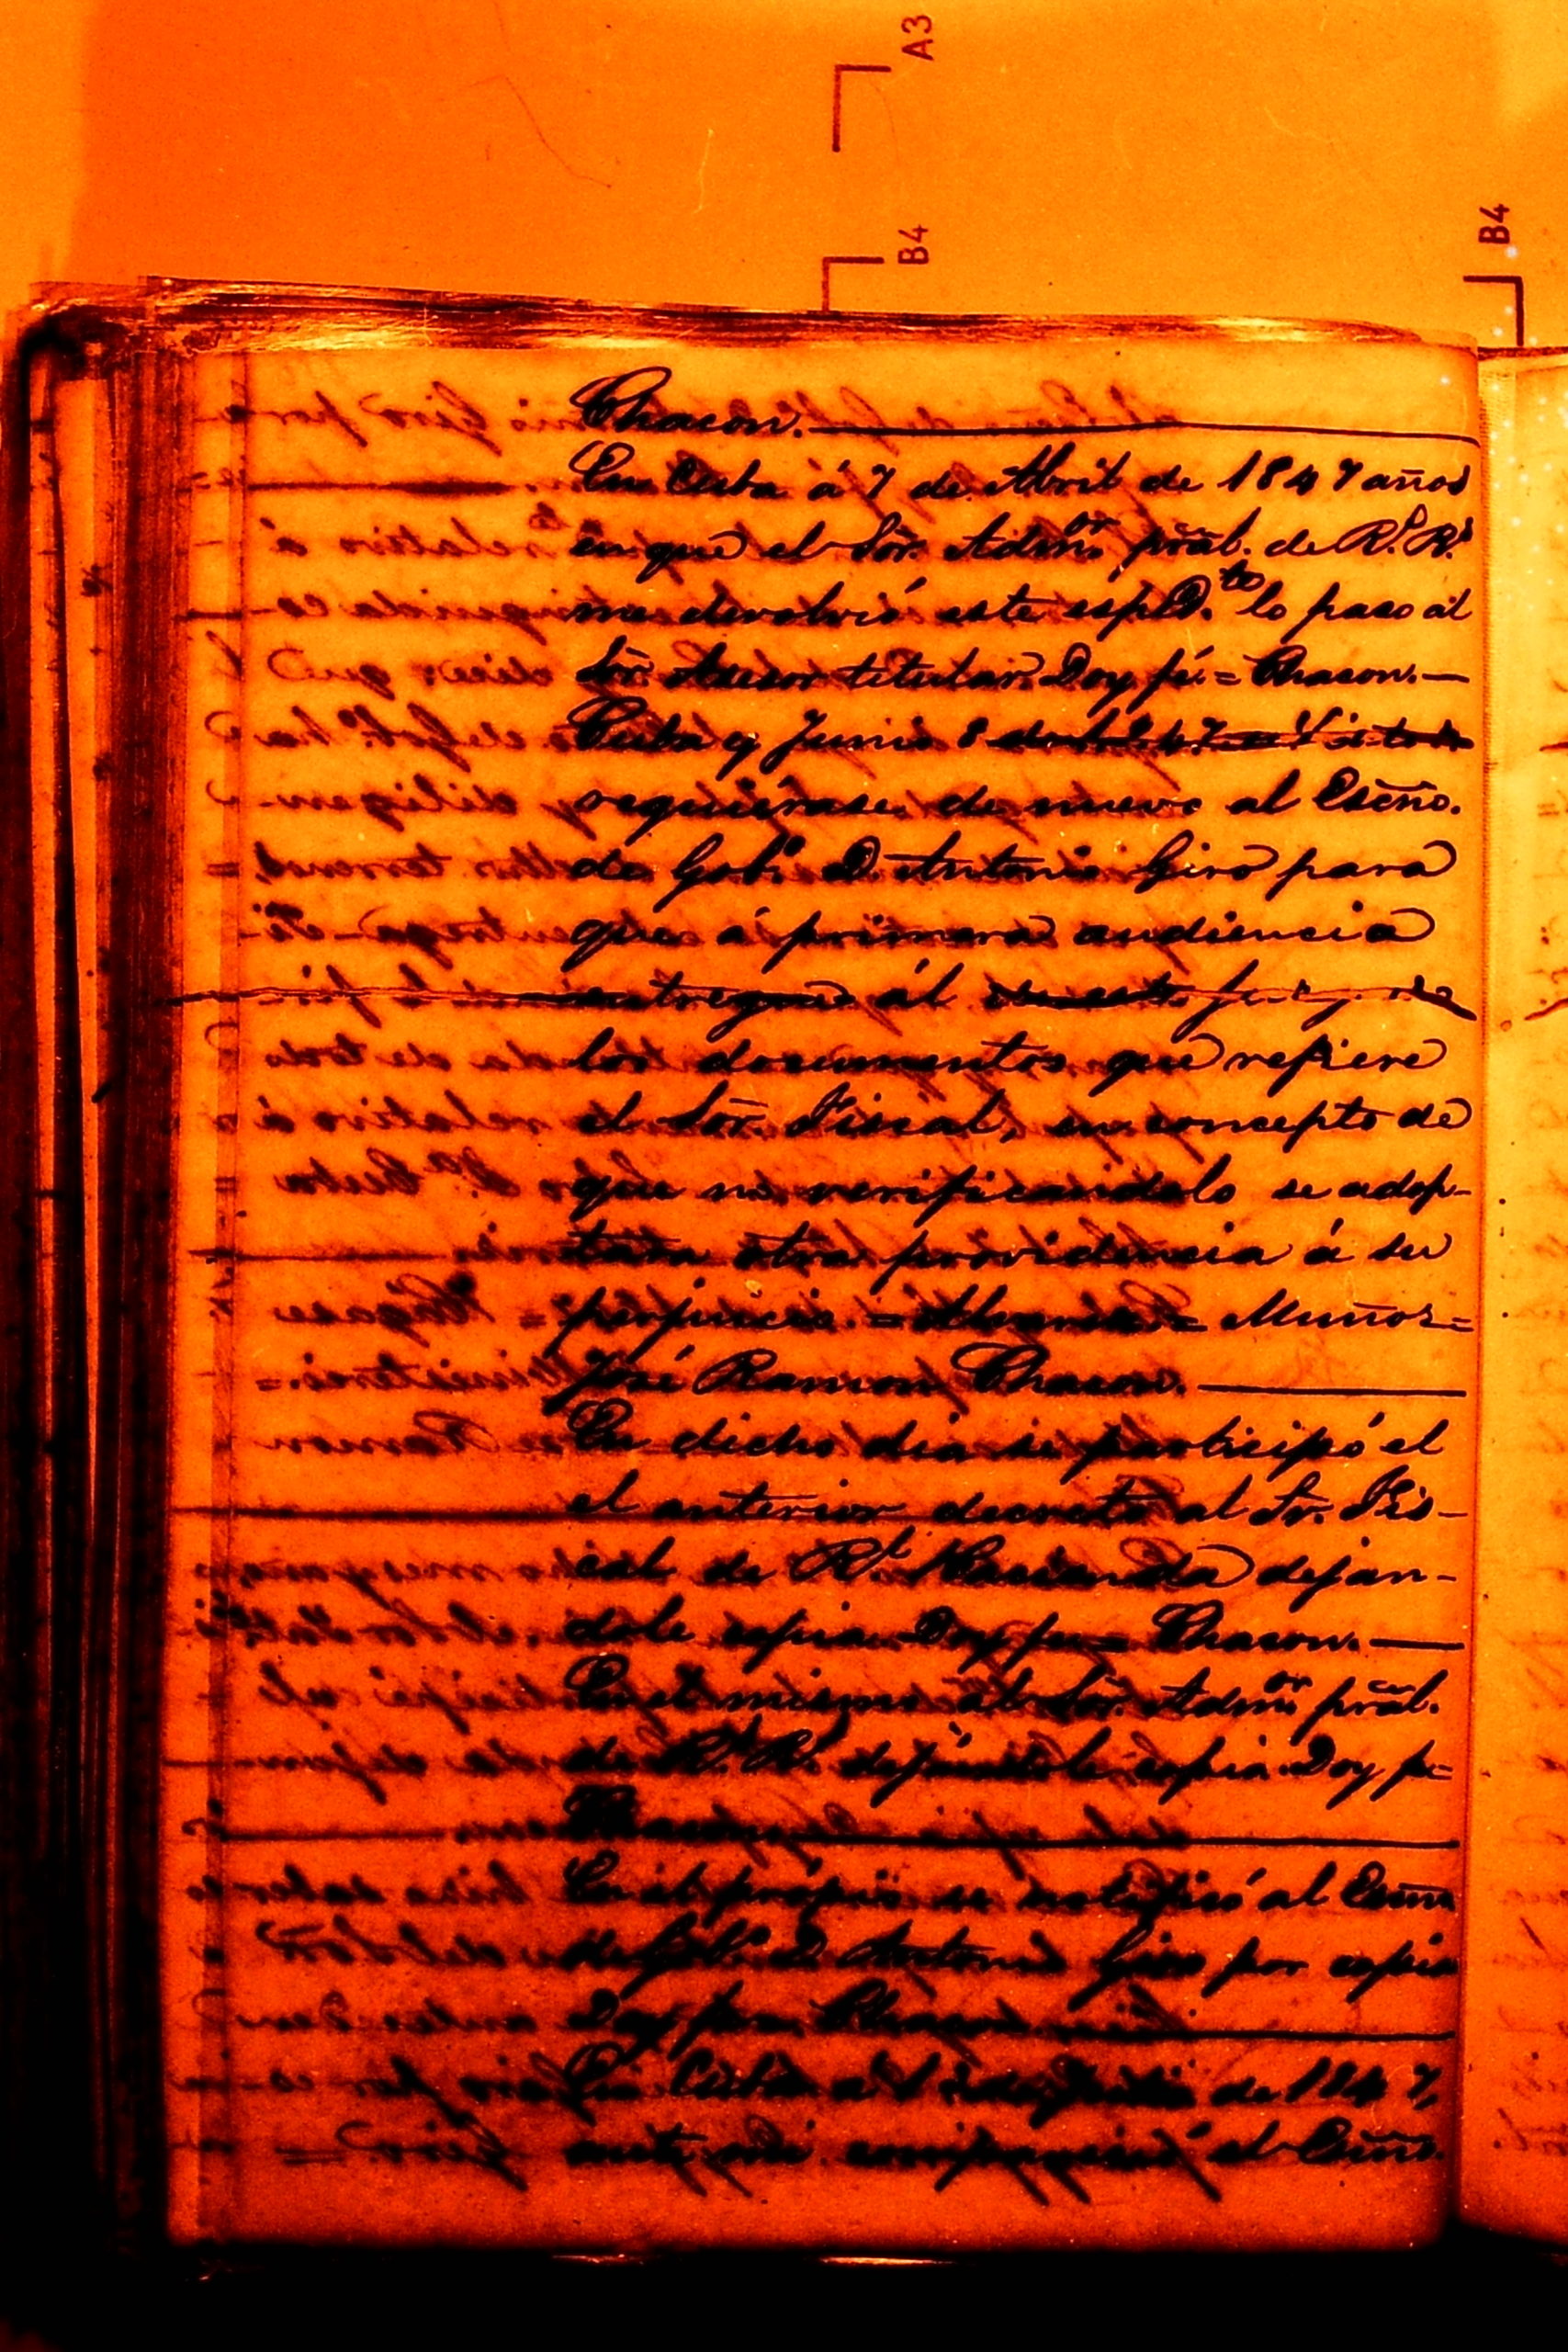 A3
B4
B4
Chacon.
En Cuba á 7 de Abril de 1847 años
en que el Sōr. Admōr. prāl. de R.s R.s
me devolvió este espD.te lo paso al
Sōr. Asesor titular. Doy fé = Chacon. —
Cuba y Junio 8 de 1847 = Vistos
requiérase de nuevo al Escño.
de Gob.o D. Antonio Giro para
que á primera audiencia
entregue al
los documentos que refiere
el Sōr. Fiscal, en concepto de
que no verificandolo se adop-
tara otra providencia á su
perjuicio. = = Muñoz =
José Ramon Chacon. —
En dicho dia se participó el
el anterior decreto al Sr. Fis-
cal de R.l Hacienda dejan-
dole copia Doy fe = Chacon. —
En el mismo al Sōr. Admōr prāl.
de R.s R.s dejándole copia Doy fe =
Chacon
En el propio se notificó al Escño
de Gob.o D. Antonio Giro por copia
Doy fe = Chacon
En Cuba á de 1847,
ante mi compareció el Escño.